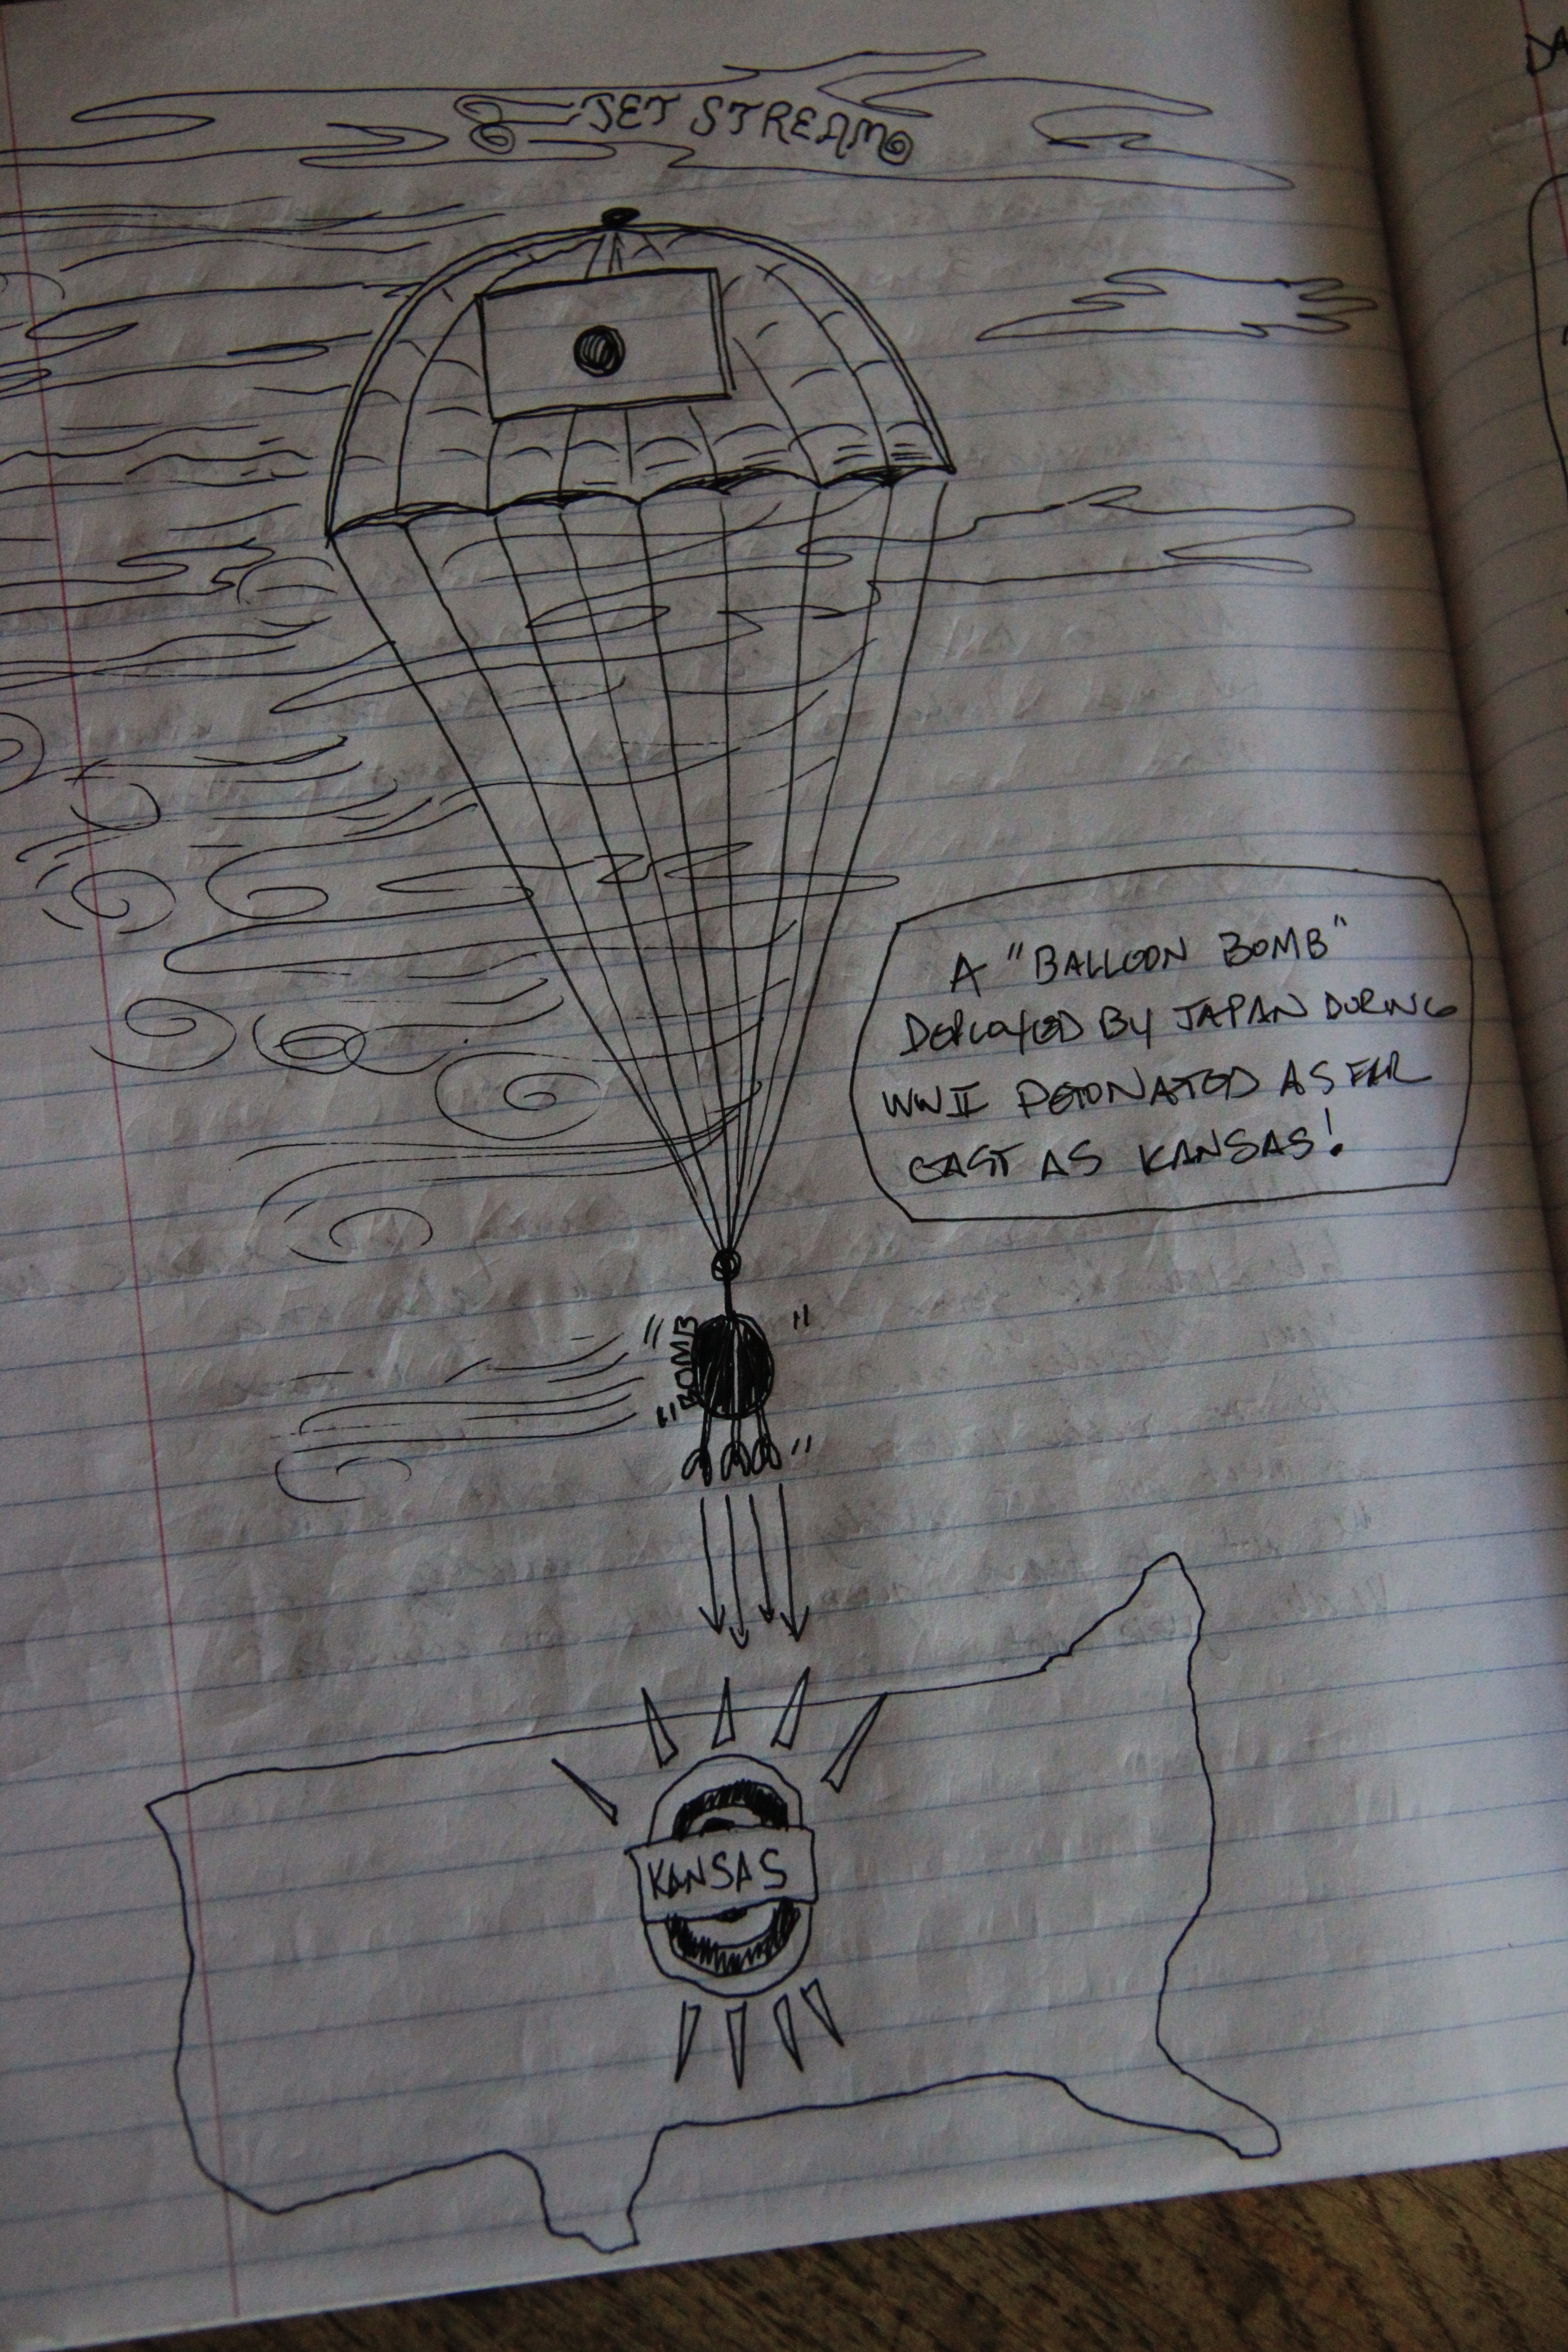 JET STREAM
A "BALLOON BOMB"
DEPLOYED BY JAPAN DURING
WWII DETONATED AS FAR
EAST AS KANSAS!
"BOMB"
KANSAS
DA